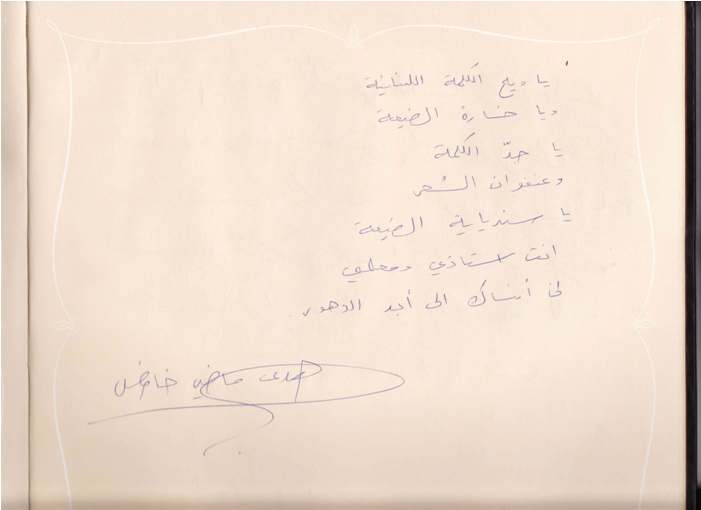 يا ويح الكلمة اللبنانية
ويا خسارة الضيعة
يا جدّ الكلمة
وعنفوان الشعر
يا سنديانة الضيعة
انت استاذي ومعلمي
لن أنساك الى أبد الدهور